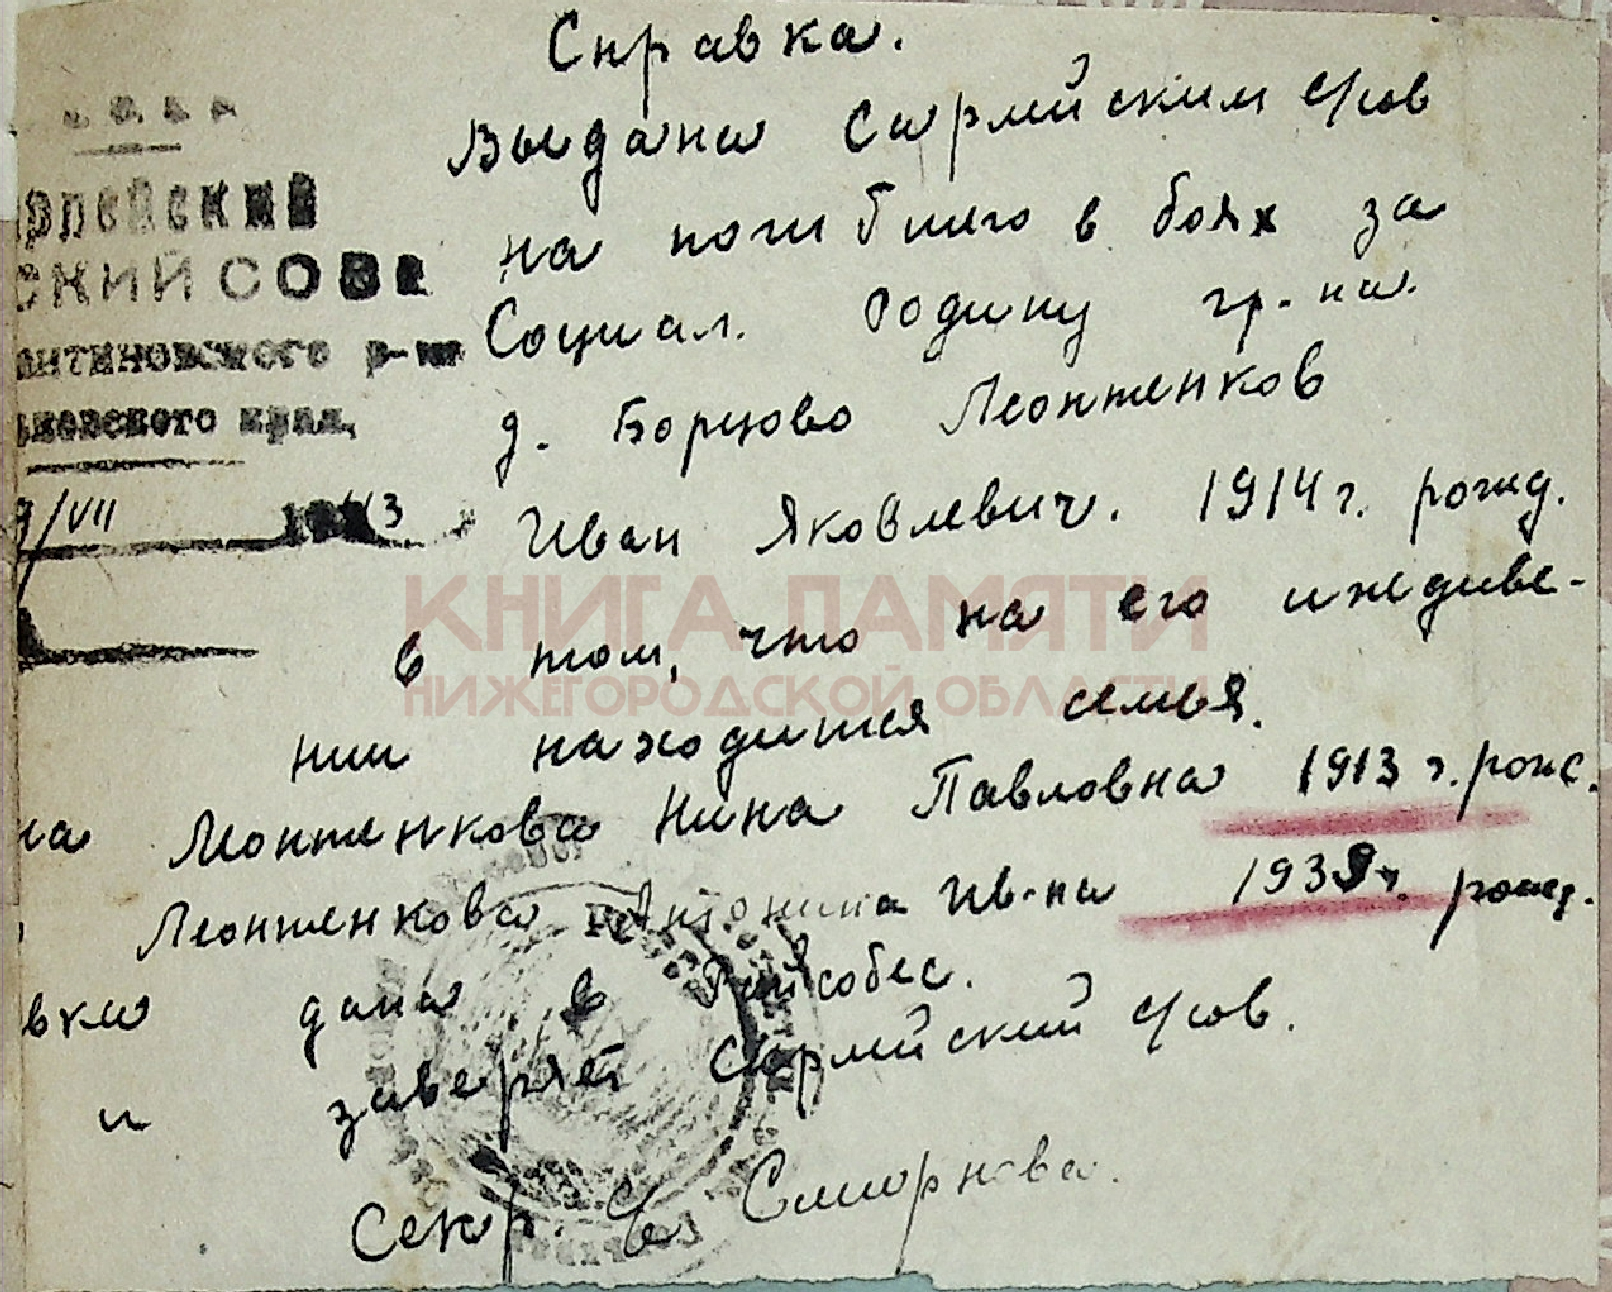 Справка.
Выдана Сарлейским с/сов
на погибшего в боях за
Социал. Родину гр-на.
д. Борцово Леонтенков
Иван Яковлевич. 1914 г. рожд.
в том, что на его иждиве-
нии находится семья.
на Леонтенкова Нина Павловна 1913 г. рожд.
Леонтенкова Антонина Ив-на 1939 г. рожд.
вки дана в Райсобес.
и заверяет Сарлейский с/сов.
Секр. Смирнова.
рлейский
СКИЙ СОВЕ
антиновского р-на
ьковского края,
9/VII 1943
КНИГА ПАМЯТИ
НИЖЕГОРОДСКОЙ ОБЛАСТИ